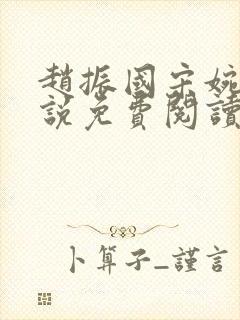 趙振國宋婉
說免費閱讀
卜算子_謹言